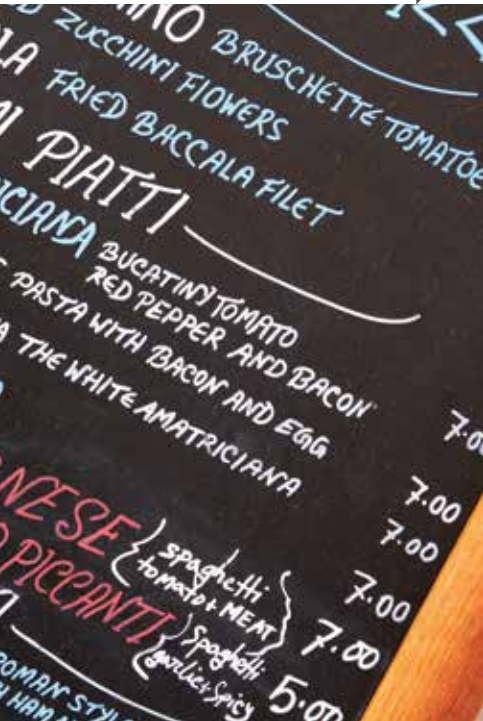 BRUSCHETTE TOMATOE
ZUCCHINI FLOWERS
FRIED BACCALA FILET
PIATTI
CIANA BUCATINY TOMATO
RED PEPPER AND BACON 7.00
PASTA WITH BACON AND EGG 7.00
THE WHITE AMATRICIANA 7.00
7.00
NESE { spaghetti
tomato+MEAT } 7.00
PICCANTI { Spaghetti
garlic+Spicy 5.00
ROMAN STYL
HAM